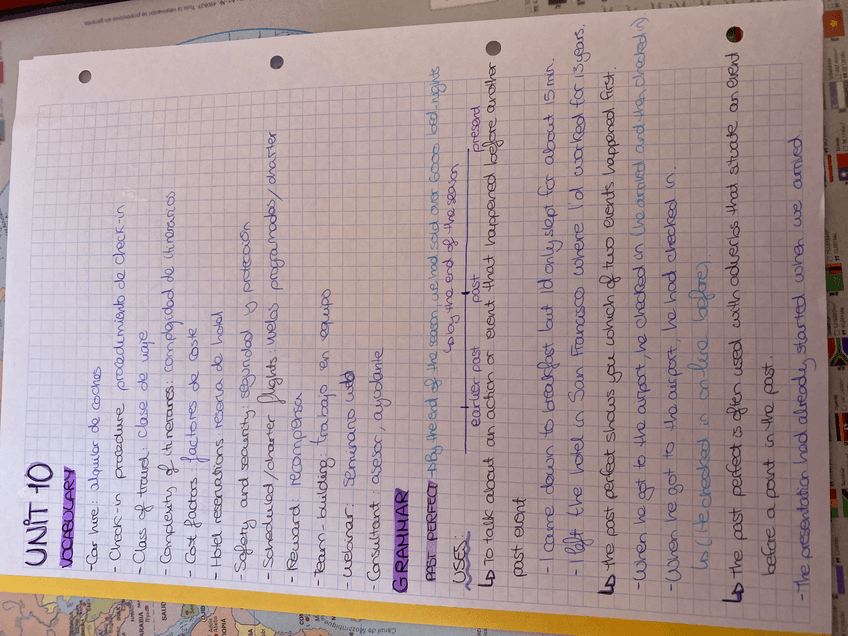 UNIT 10
VOCABULARY
- Car hire: alquiler de coches
- Check-in procedure procedimiento de check-in
- Class of travel: clase de viaje
- Complexity of itineraries: complejidad de itinerarios
- Cost factors factores de coste
- Hotel reservations reserva de hotel
- Safety and security: seguridad y protección
- Scheduled/charter flights vuelos programados/charter
- Reward: recompensa
- Team-building: trabajo en equipo
- Webinar: seminario web
- Consultant: asesor, ayudante
GRAMMAR
PAST PERFECT → By the end of the season we had sold over 6000 bed-nights
↳ by the end of the season
earlier past past present
USES:
↳ To talk about an action or event that happened before another
past event
- I came down to breakfast but I'd only slept for about 15 min.
- I left the hotel in San Francisco where I'd worked for 13 years.
↳ the past perfect shows you which of two events happened first.
- When he got to the airport, he checked in (he arrived and then checked in)
- When he got to the airport, he had checked in.
↳ (He checked in on-line before)
↳ the past perfect is often used with adverbs that situate an event
before a point in the past.
- The presentation had already started when we arrived.
ARABIA
Canal de Mozambique